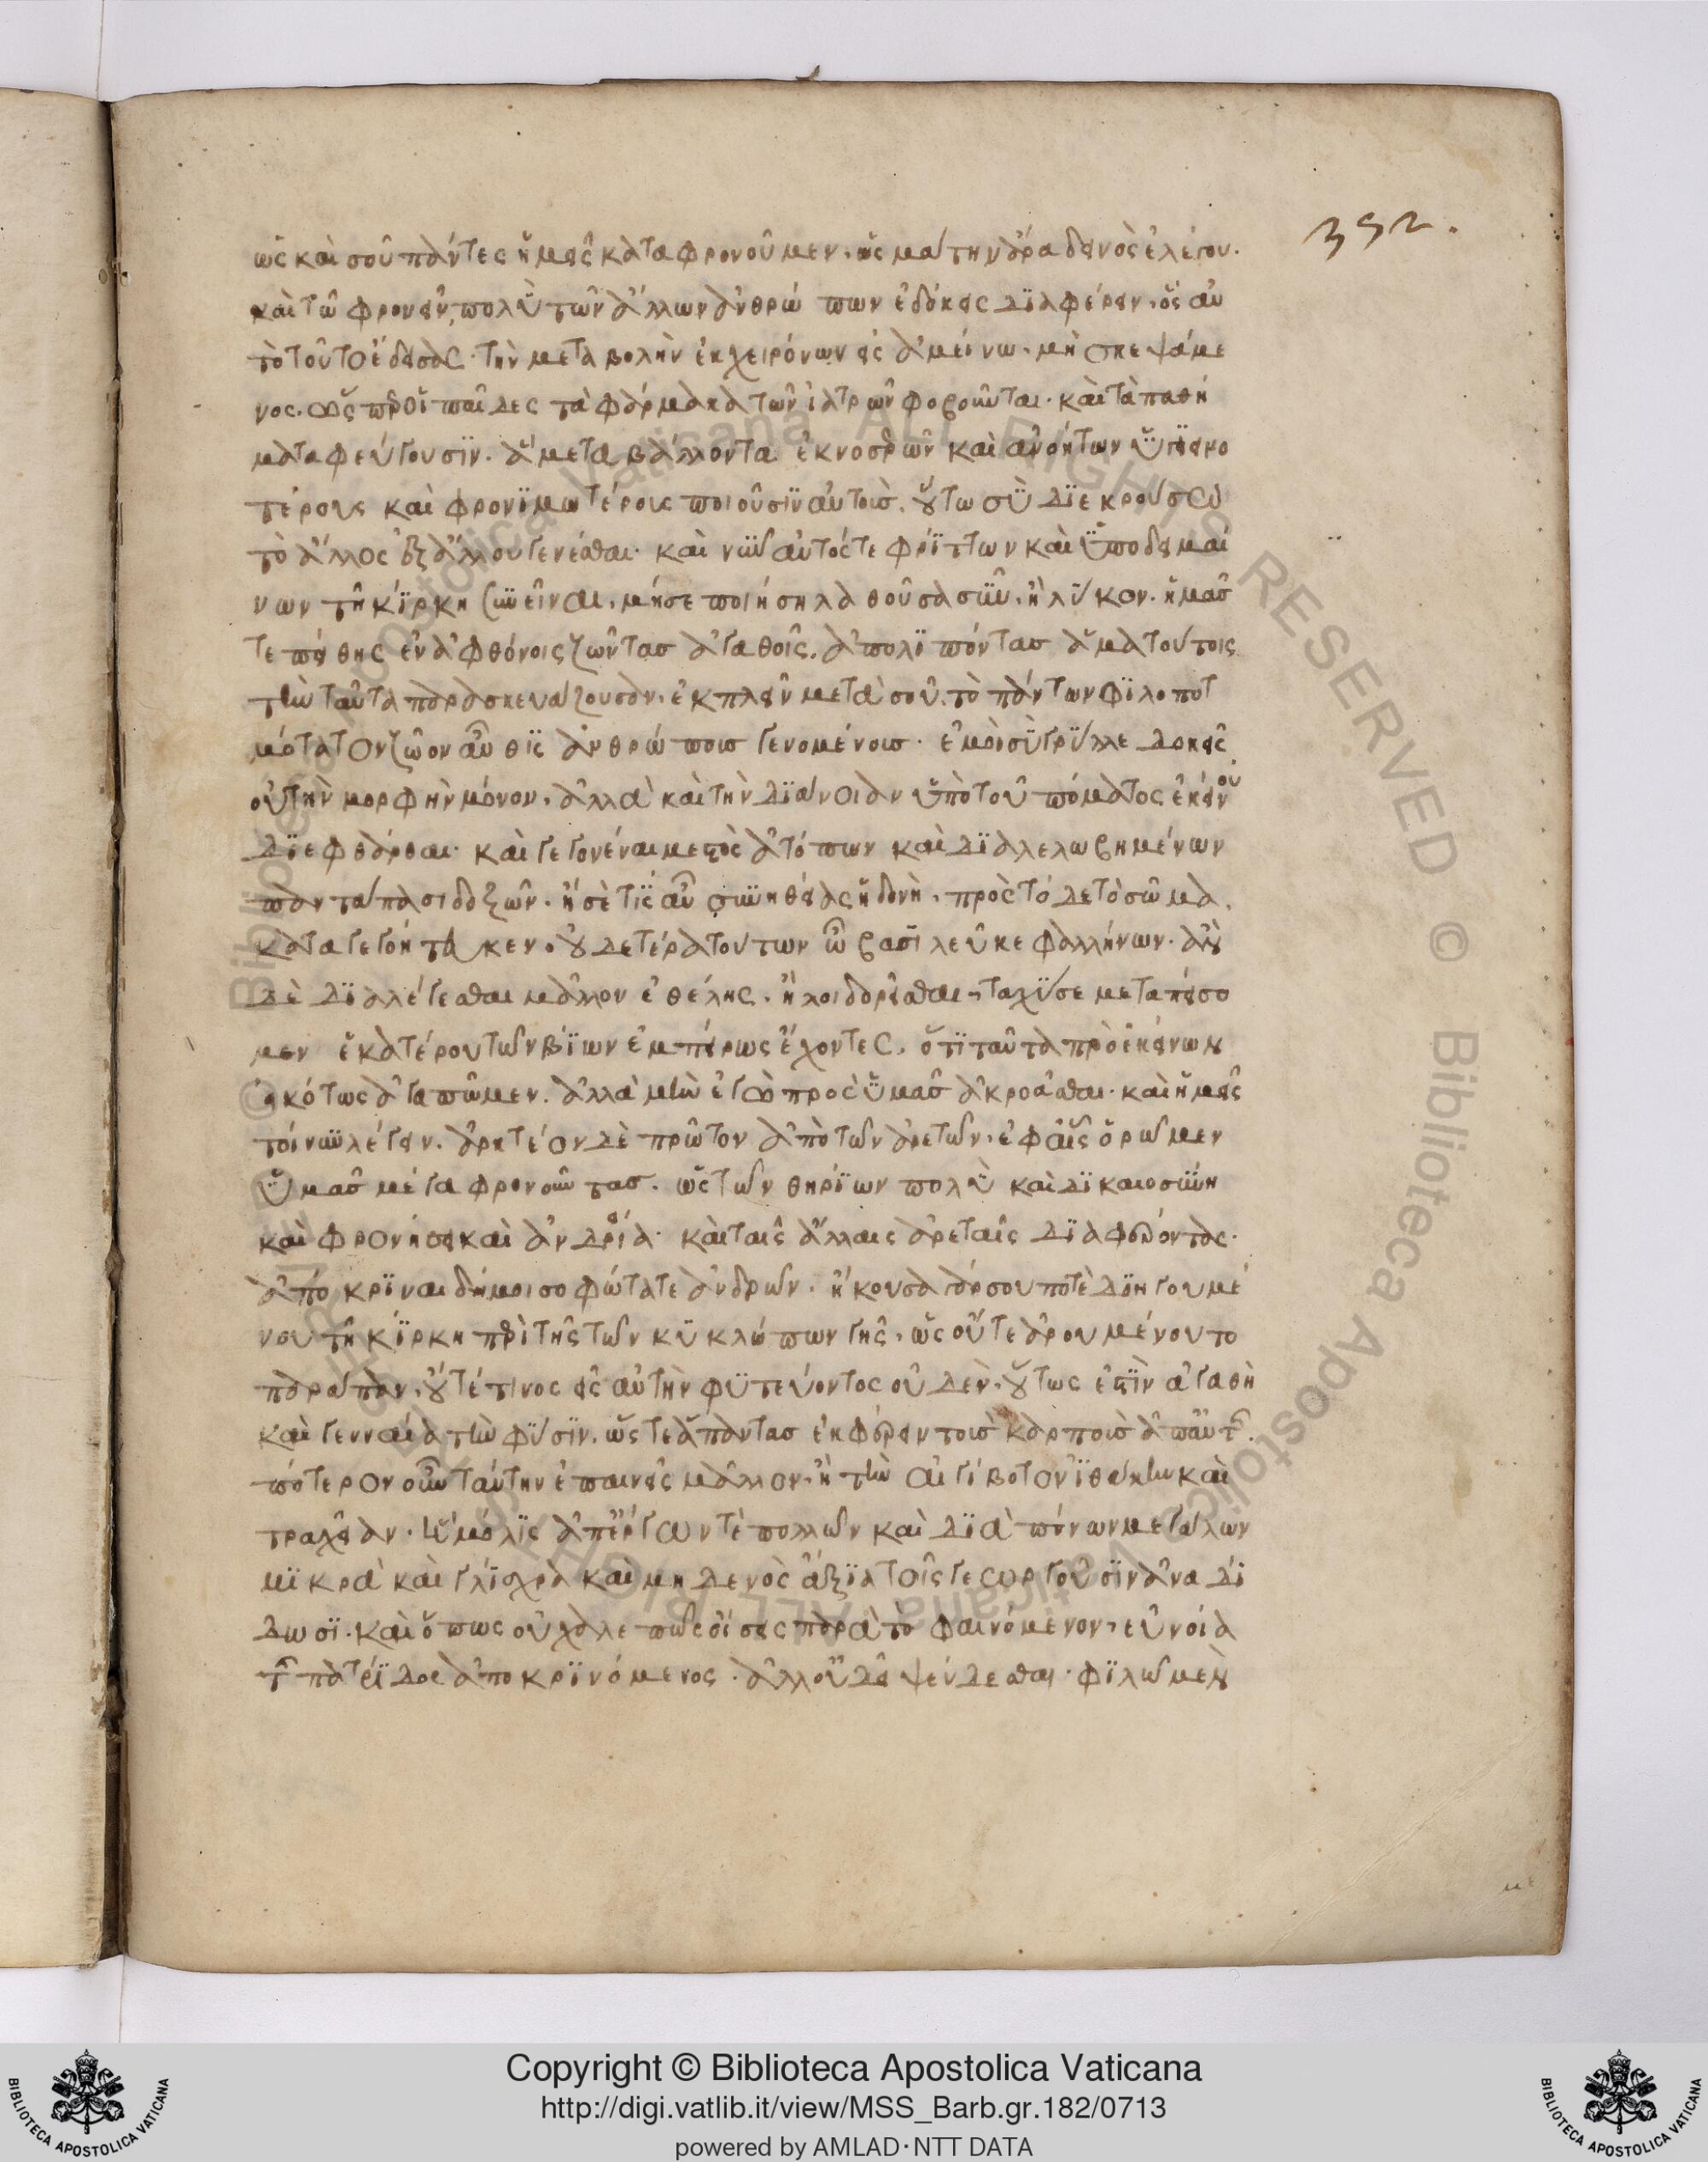 352.
ὡς καὶ σοῦ πάντες ἡμεῖς καταφρονοῦμεν. ὡς μάτην ἄρα δεινὸς ἐλέγου.
καὶ τῶ φρονεῖν πολὺ τῶν ἄλλων ἀνθρώπων ἐδόκεις διαφέρειν. ὃς αὐ
τὸ τοῦτο ἔδεισας. τὴν μεταβολὴν ἐκ χειρόνων εἰς ἀμείνω. μὴ σκεψάμε
νος. ὡς γὰρ οἱ παῖδες τὰ φάρμακα τῶν ἰατρῶν φοβοῦνται. καὶ τὰ παθή
ματα φεύγουσιν. ἃ μεταβάλλοντα ἐκ νοσερῶν καὶ ἀνοήτων ὑγιεινο
τέρους καὶ φρονιμωτέρους ποιοῦσιν αὐτοὺς. οὕτω σὺ διεκρούσω
τὸ ἄλλος ἐξ ἄλλου γενέσθαι. καὶ νῦν αὐτός τε φρίττων καὶ ὑποδειμαί
νων τῆ κίρκη συνεῖναι. μή σε ποιήση λαθοῦσα σῦν. ἢ λύκον. ἡμᾶς
τε πείθης ἐν ἀφθόνοις ζῶντας ἀγαθοῖς. ἀπολιπόντας ἅμα τούτοις
τὴν ταῦτα παρασκευάζουσαν. ἐκπλεῖν μετὰ σοῦ. τὸ πάντων φιλοποτ
μότατον ζῶον αὖθις ἀνθρώποις γενομένοις. ἐμοὶ σὺ γρύλλε δοκεῖς
οὐ τὴν μορφὴν μόνον. ἀλλὰ καὶ τὴν διάνοιαν ὑπὸ τοῦ πόματος ἐκείνου
διεφθάρθαι. καὶ γεγονέναι μεστὸς ἀτόπων καὶ διαλελωβημένων
παντάπασι δοξῶν. ἢ σέ τις αὖ συνηθείας ἡδονὴ. πρὸς τό δε τὸ σῶμα.
καταγεγοήτευκεν. οὐδέτερα τούτων ὦ βασιλεῦ κεφαλλήνων. ἂν
δὲ διαλέγεσθαι μᾶλλον ἐθέλης. ἢ λοιδορεῖσθαι. ταχύ σε μεταπείσο
μεν ἑκατέρου τῶν βίων ἐμπείρως ἔχοντες. ὅτι ταῦτα πρὸ ἐκείνων
εἰκότως ἀγαπῶμεν. ἀλλὰ μὴν ἐγὼ πρὸς ὑμᾶς ἀκροᾶσθαι. καὶ ἡμεῖς
τοίνυν λέγειν. ἀρκτέον δὲ πρῶτον ἀπὸ τῶν ἀρετῶν. ἐφ αἷς ὁρῶμεν
ὑμᾶς μέγα φρονοῦντας. ὡς τῶν θηρίων πολὺ καὶ δικαιοσύνη
καὶ φρονήσει καὶ ἀνδρεία. καὶ ταῖς ἄλλαις ἀρεταῖς διαφέροντας.
ἀπόκριναι δή μοι σοφώτατε ἀνδρῶν. ἤκουσα γάρ σου ποτὲ διηγουμέ
νου τῆ κίρκη περὶ τῆς τῶν κυκλώπων γῆς. ὡς οὔτε ἀρουμένου το
παράπαν. οὔτέ τινος εἰς αὐτὴν φυτεύοντος οὐδὲν. οὕτως ἐστὶν ἀγαθὴ
καὶ γενναία τὴν φύσιν. ὥστε ἅπαντας ἐκφέρειν τοὺς καρποὺς ἀπ αὐτῆς.
πότερον οὖν ταύτην ἐπαινεῖς μᾶλλον. ἢ τὴν αἰγίβοτον ἰθάκην καὶ
τραχεῖαν. ἣ μόλις ἀπ ἔργων τὲ πολλῶν καὶ διὰ πόνων μεγάλων
μικρὰ καὶ γλίσχρα καὶ μηδενὸς ἄξια τοῖς γεωργοῦσιν ἀναδί
δωσι. καὶ ὅπως οὐ χαλεπῶς οἴσεις παρὰ τὸ φαινόμενον. εὐνοία
τῆς πατρίδος ἀποκρινόμενος. ἀλλ οὐ δεῖ ψεύδεσθαι. φιλῶ μὲν